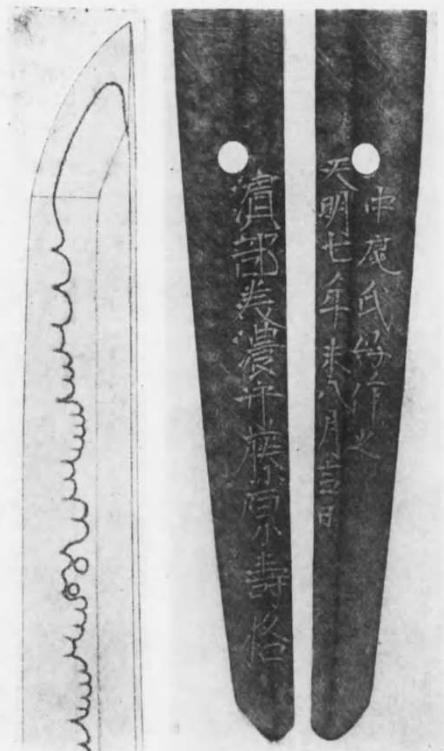 濱部美濃守藤原壽格
中 氏 作之
天明七年未八月吉日